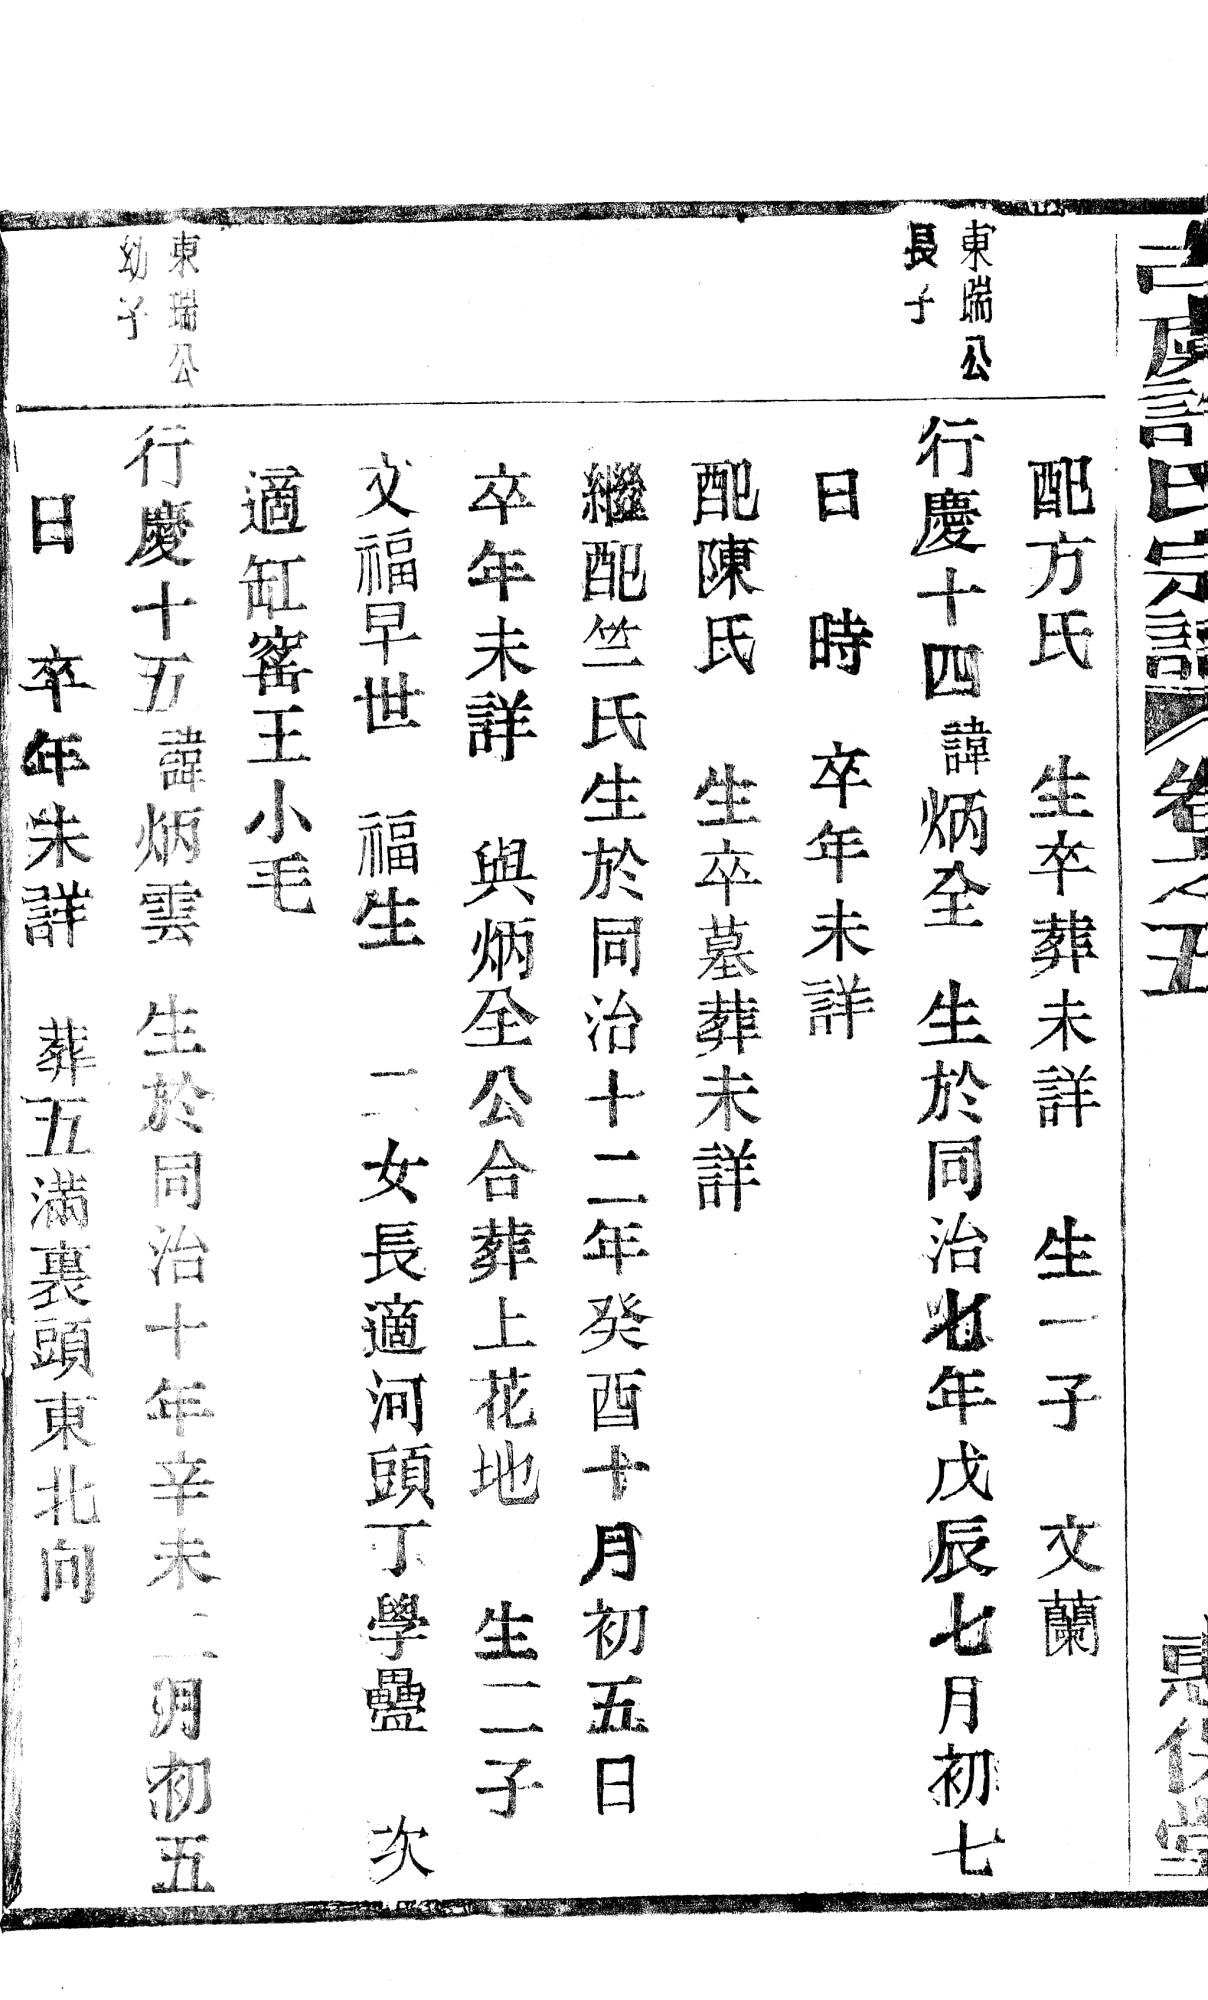 許氏宗譜 卷之五
配方氏 生卒葬未詳 生一子 文蘭
東瑞公
長子
行慶十四諱炳全 生於同治七年戊辰七月初七
日 時 卒年未詳
配陳氏 生卒墓葬未詳
繼配竺氏生於同治十二年癸酉十月初五日
卒年未詳 與炳全公合葬上花地 生二子
文福早世 福生 二女長適河頭丁學 次
適缸窰王小毛
東瑞公
幼子
行慶十五諱炳雲 生於同治十年辛未二月初五
日 卒年未詳 葬五滿裏頭東北向